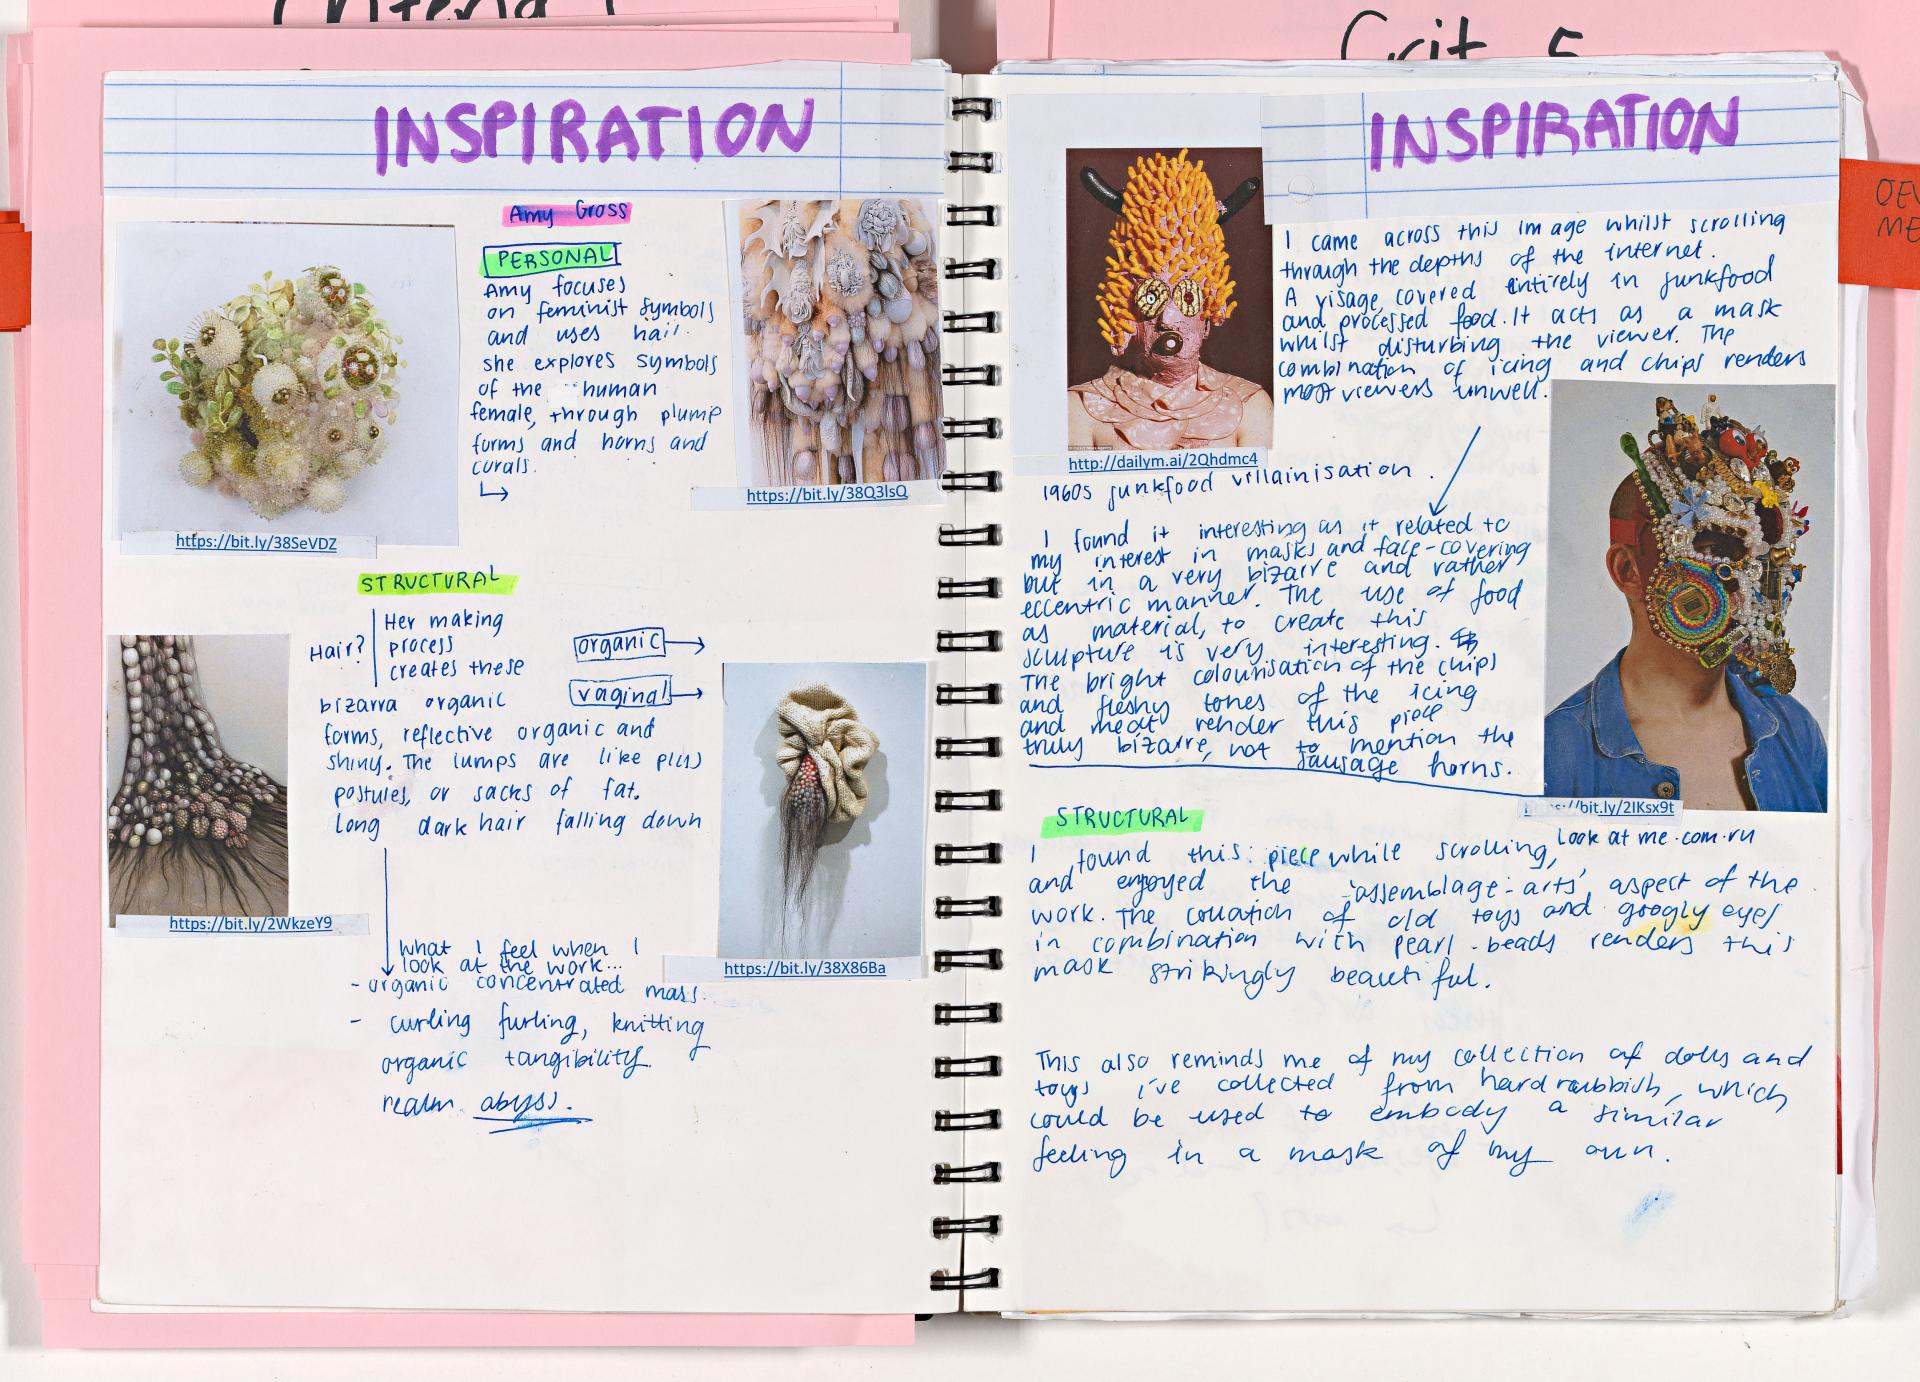 Criteria 1
INSPIRATION
Amy Gross
PERSONAL
Amy focuses
on feminist symbols
and uses hair.
she explores symbols
of the human
female, through plump
forms and horns and
corals.
https://bit.ly/38SeVDZ
https://bit.ly/38Q3lsQ
STRUCTURAL
Hair?
Her making
process
creates these
bizarra organic
forms, reflective organic and
shiny. The lumps are like plus
postules, or sacks of fat.
Long dark hair falling down
organic
vaginal
https://bit.ly/2WkzeY9
https://bit.ly/38X86Ba
What I feel when I
look at the work...
- organic concentrated mass.
- curling furling, knitting
organic tangibility.
realm abyss.
Crit 5
INSPIRATION
I came across this image whilst scrolling
through the depths of the internet.
A visage, covered entirely in junkfood
and processed food. It acts as a mask
whilst disturbing the viewer. The
combination of icing and chips renders
most viewers unwell.
http://dailym.ai/2Qhdmc4
1960s junkfood villainisation.
I found it interesting as it related to
my interest in masks and face-covering
but in a very bizarre and rather
eccentric manner. The use of food
as material, to create this
sculpture is very interesting.
The bright colourisation of the chips
and fleshy tones of the icing
and meat render this piece
truly bizarre, not to mention the
sausage horns.
https://bit.ly/2IKsx9t
Look at me.com.ru
STRUCTURAL
I found this piece while scrolling,
and enjoyed the 'assemblage-arts' aspect of the
work. The colation of old toys and googly eyes
in combination with pearl-beads renders this
mask strikingly beautiful.
This also reminds me of my collection of dolls and
toys i've collected from hard rubbish, which
could be used to embody a similar
feeling in a mask of my own.